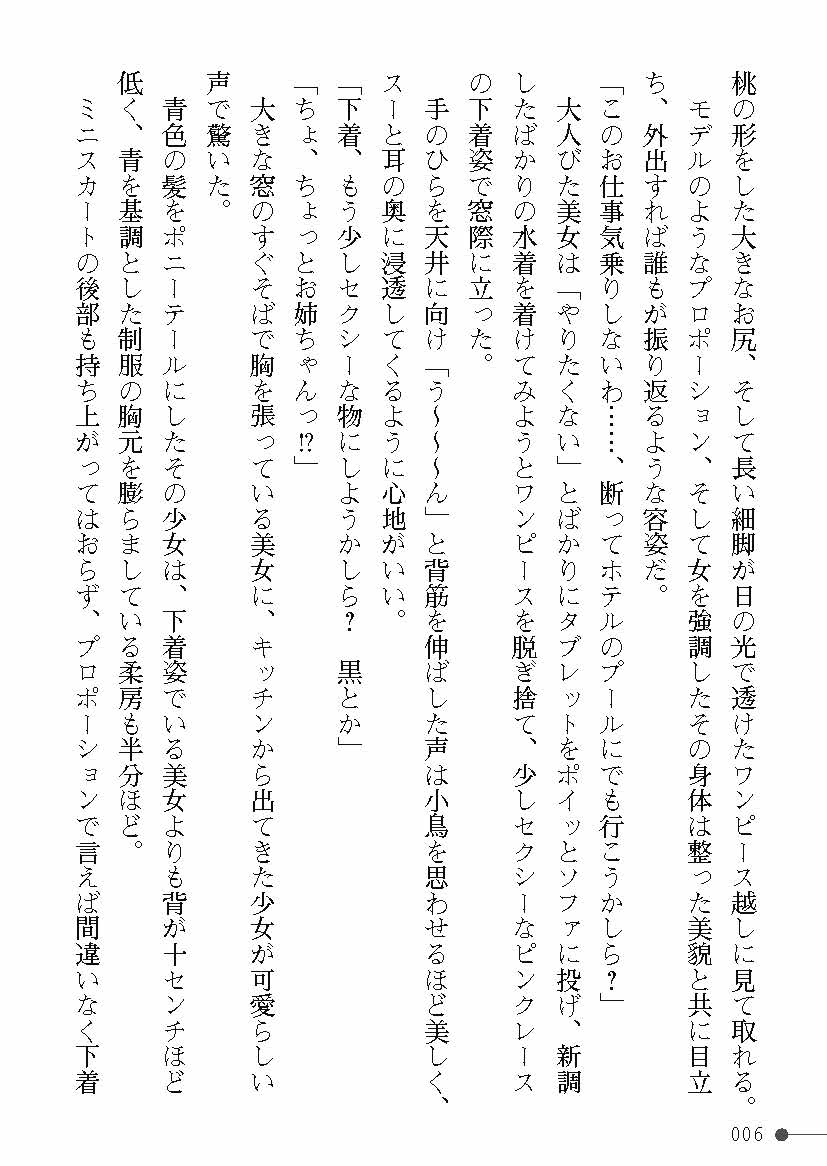 桃の形をした大きなお尻、そして長い細脚が日の光で透けたワンピース越しに見て取れる。
モデルのようなプロポーション、そして女を強調したその身体は整った美貌と共に目立
ち、外出すれば誰もが振り返るような容姿だ。
「このお仕事気乗りしないわ……、断ってホテルのプールにでも行こうかしら？」
大人びた美女は「やりたくない」とばかりにタブレットをポイッとソファに投げ、新調
したばかりの水着を着けてみようとワンピースを脱ぎ捨て、少しセクシーなピンクレース
の下着姿で窓際に立った。
手のひらを天井に向け「う～～～ん」と背筋を伸ばした声は小鳥を思わせるほど美しく、
スーと耳の奥に浸透してくるように心地がいい。
「下着、もう少しセクシーな物にしようかしら？　黒とか」
「ちょ、ちょっとお姉ちゃんっ!?」
大きな窓のすぐそばで胸を張っている美女に、キッチンから出てきた少女が可愛らしい
声で驚いた。
青色の髪をポニーテールにしたその少女は、下着姿でいる美女よりも背が十センチほど
低く、青を基調とした制服の胸元を膨らましている柔房も半分ほど。
ミニスカートの後部も持ち上がってはおらず、プロポーションで言えば間違いなく下着
006